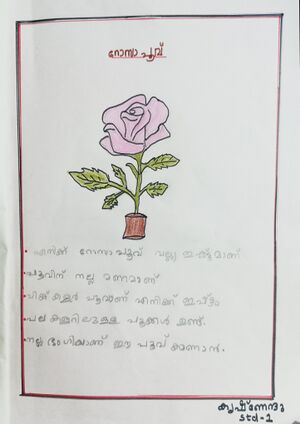 റോസാപൂവ്
എനിക്ക് റോസാപൂവ് വല്യ ഇഷ്ടമാണ്
പൂവിന് നല്ല മണമാണ്
പിങ്ക് കളർ പൂവാണ് എനിക്ക് ഇഷ്ടം
പല കളറിലുള്ള പൂക്കൾ ഉണ്ട്.
നല്ല ഭംഗിയാണ് ഈ പൂവ് കാണാൻ.
കൃഷ്ണേന്ദു
Std-1